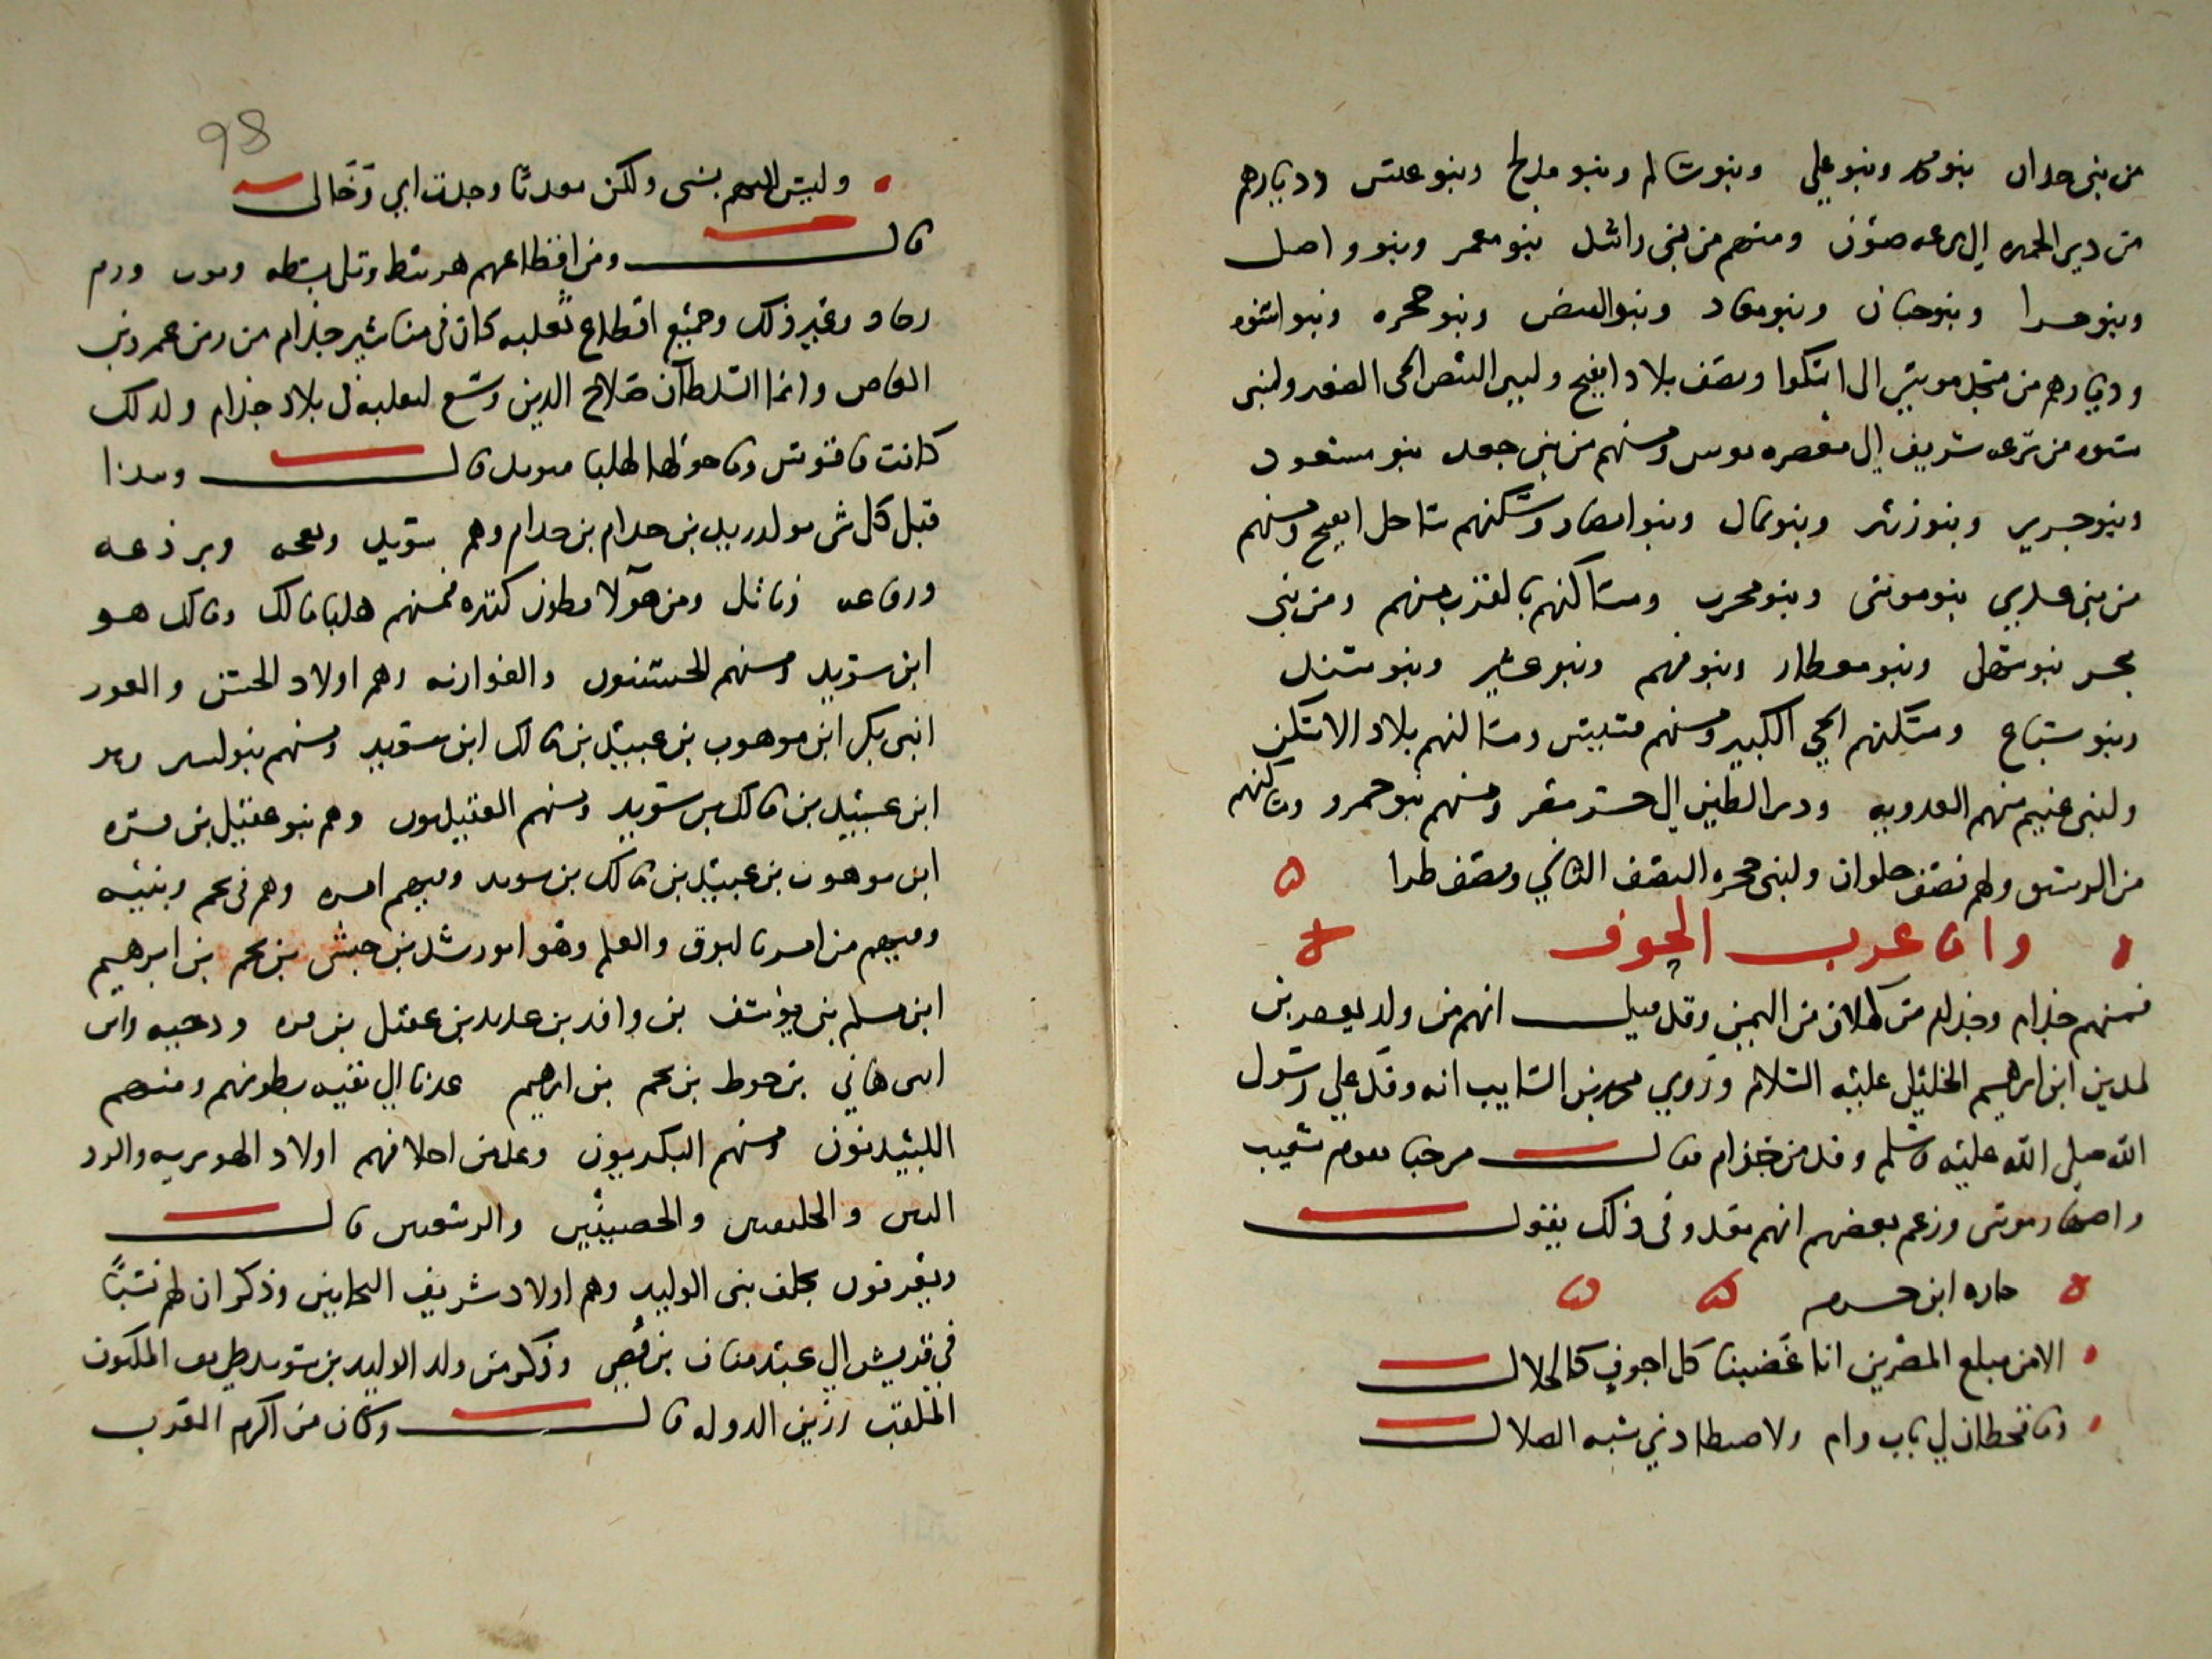 من بني حدان بنو محمد وبنو علي وبنو سالم وبنو مدلج وبنو عبس وديارهم
من دير الجميزة الى ترعة صون ومنهم من بني راشد بنو معمر وبنو واصل
وبنو مرا وبنو حبان وبنو معاد وبنو البيض وبنو حجره وبنو اسنوه
وديارهم من مسجد موسى الى اسكوا ونصف بلاد اطفيح ولبني البيض الحي الصغير ولبني
سنوه من ترعة شريف الى معصره بوش ومنهم من بني جعد بنو مسعود
وبنو جرير وبنو زبير وبنو ثمال وبنو انصار ومسكنهم ساحل اطفيح ومنهم
من بني عدي بنو موسى وبنو محرب ومساكنهم بالقرب منهم ومن بني
بحر بنو سهل وبنو معطار وبنو فهم وبنو عشير وبنو مسند
وبنو سباع ومسكنهم الحي الكبير ومنهم قسيس ومساكنهم بلاد الاسكر
ولبني غنيم منهم العدويه ودير الطين الى جسر مصر ومنهم بنو عمرو ومساكنهم
من الرستق ولهم نصف حلوان ولبني حجره النصف الثاني ونصف طرا
واما عرب الحوف
فمنهم جذام وجذام من كهلان من اليمن وقد قيل انهم من ولد يعصر بن
لمدين ابن ابرهيم الخليل عليه السلام وروي محمد بن السايب انه وفد علي رسول
الله صلى الله عليه وسلم وفد من جذام فقال مرحبا بقوم شعيب
واصهار موسى وزعم بعضهم انهم من معد وفي ذلك يقول
جاده ابن خشرم
الا من مبلغ المضرين انا غضبنا كل اجوف كالحلال
وما قحطان لي باب وام ولا تصطادني شبه الضلال
98
وليس اليهم نسبي ولكن معديا وجدت ابي وخالي
قال ومن اقطاعهم هربيط وتل بسطه ونوب ورم
رماد وغير ذلك وجميع اقطاع ثعلبه كان في مناشير جذام من زمن عمرو بن
العاص وانما السلطان صلاح الدين وسع لثعلبه في بلاد جذام ولذلك
كانت فاقوس وما حولها لهلبا سويد قال وبدا
قبل كل شي بولد زيد بن حرام بن جذام وهم سويد وبعجه وبرذعه
ورفاعه وناثل ومن هولا بطون كثيره فمنهم هلبا مالك ومالك هو
ابن سويد ومنهم الحسنيون والغوارنه وهم اولاد الحسن والغور
ابني بكر ابن موهوب بن عبيد بن مالك ابن سويد ومنهم بنو اسير وهم
ابن عبيد بن مالك بن سويد ومنهم العقيليون وهم بنو عقيل بن مره
ابن موهوب بن عبيد بن مالك بن سويد وفيهم امره وهم في نجم وبنيه
وفيهم من امر بالبوق والعلم وهو ابو رشد بن حبش بن نجم بن ابرهيم
ابن مسلم بن يوسف بن وافد بن غدير بن عقيل بن مره ودحيه وابن
ابي هاني بن حوط بن نجم بن ابرهيم عدنا الى بقيه بطونهم ومنهم
اللبيديون ومنهم البكريون وعدين احلافهم اولاد الهوبريه والرد
اليين والحليفين والحصينيين والربيعيين قال
ويعرفون بحلف بني الوليد وهم اولاد شريف النجابين وذكر ان لهم نسبا
في قريش الى عبد مناف بن قصي وذكر من ولد الوليد بن سويد طريف المكنون
الملقب بزين الدوله قال وكان من اكرم العرب